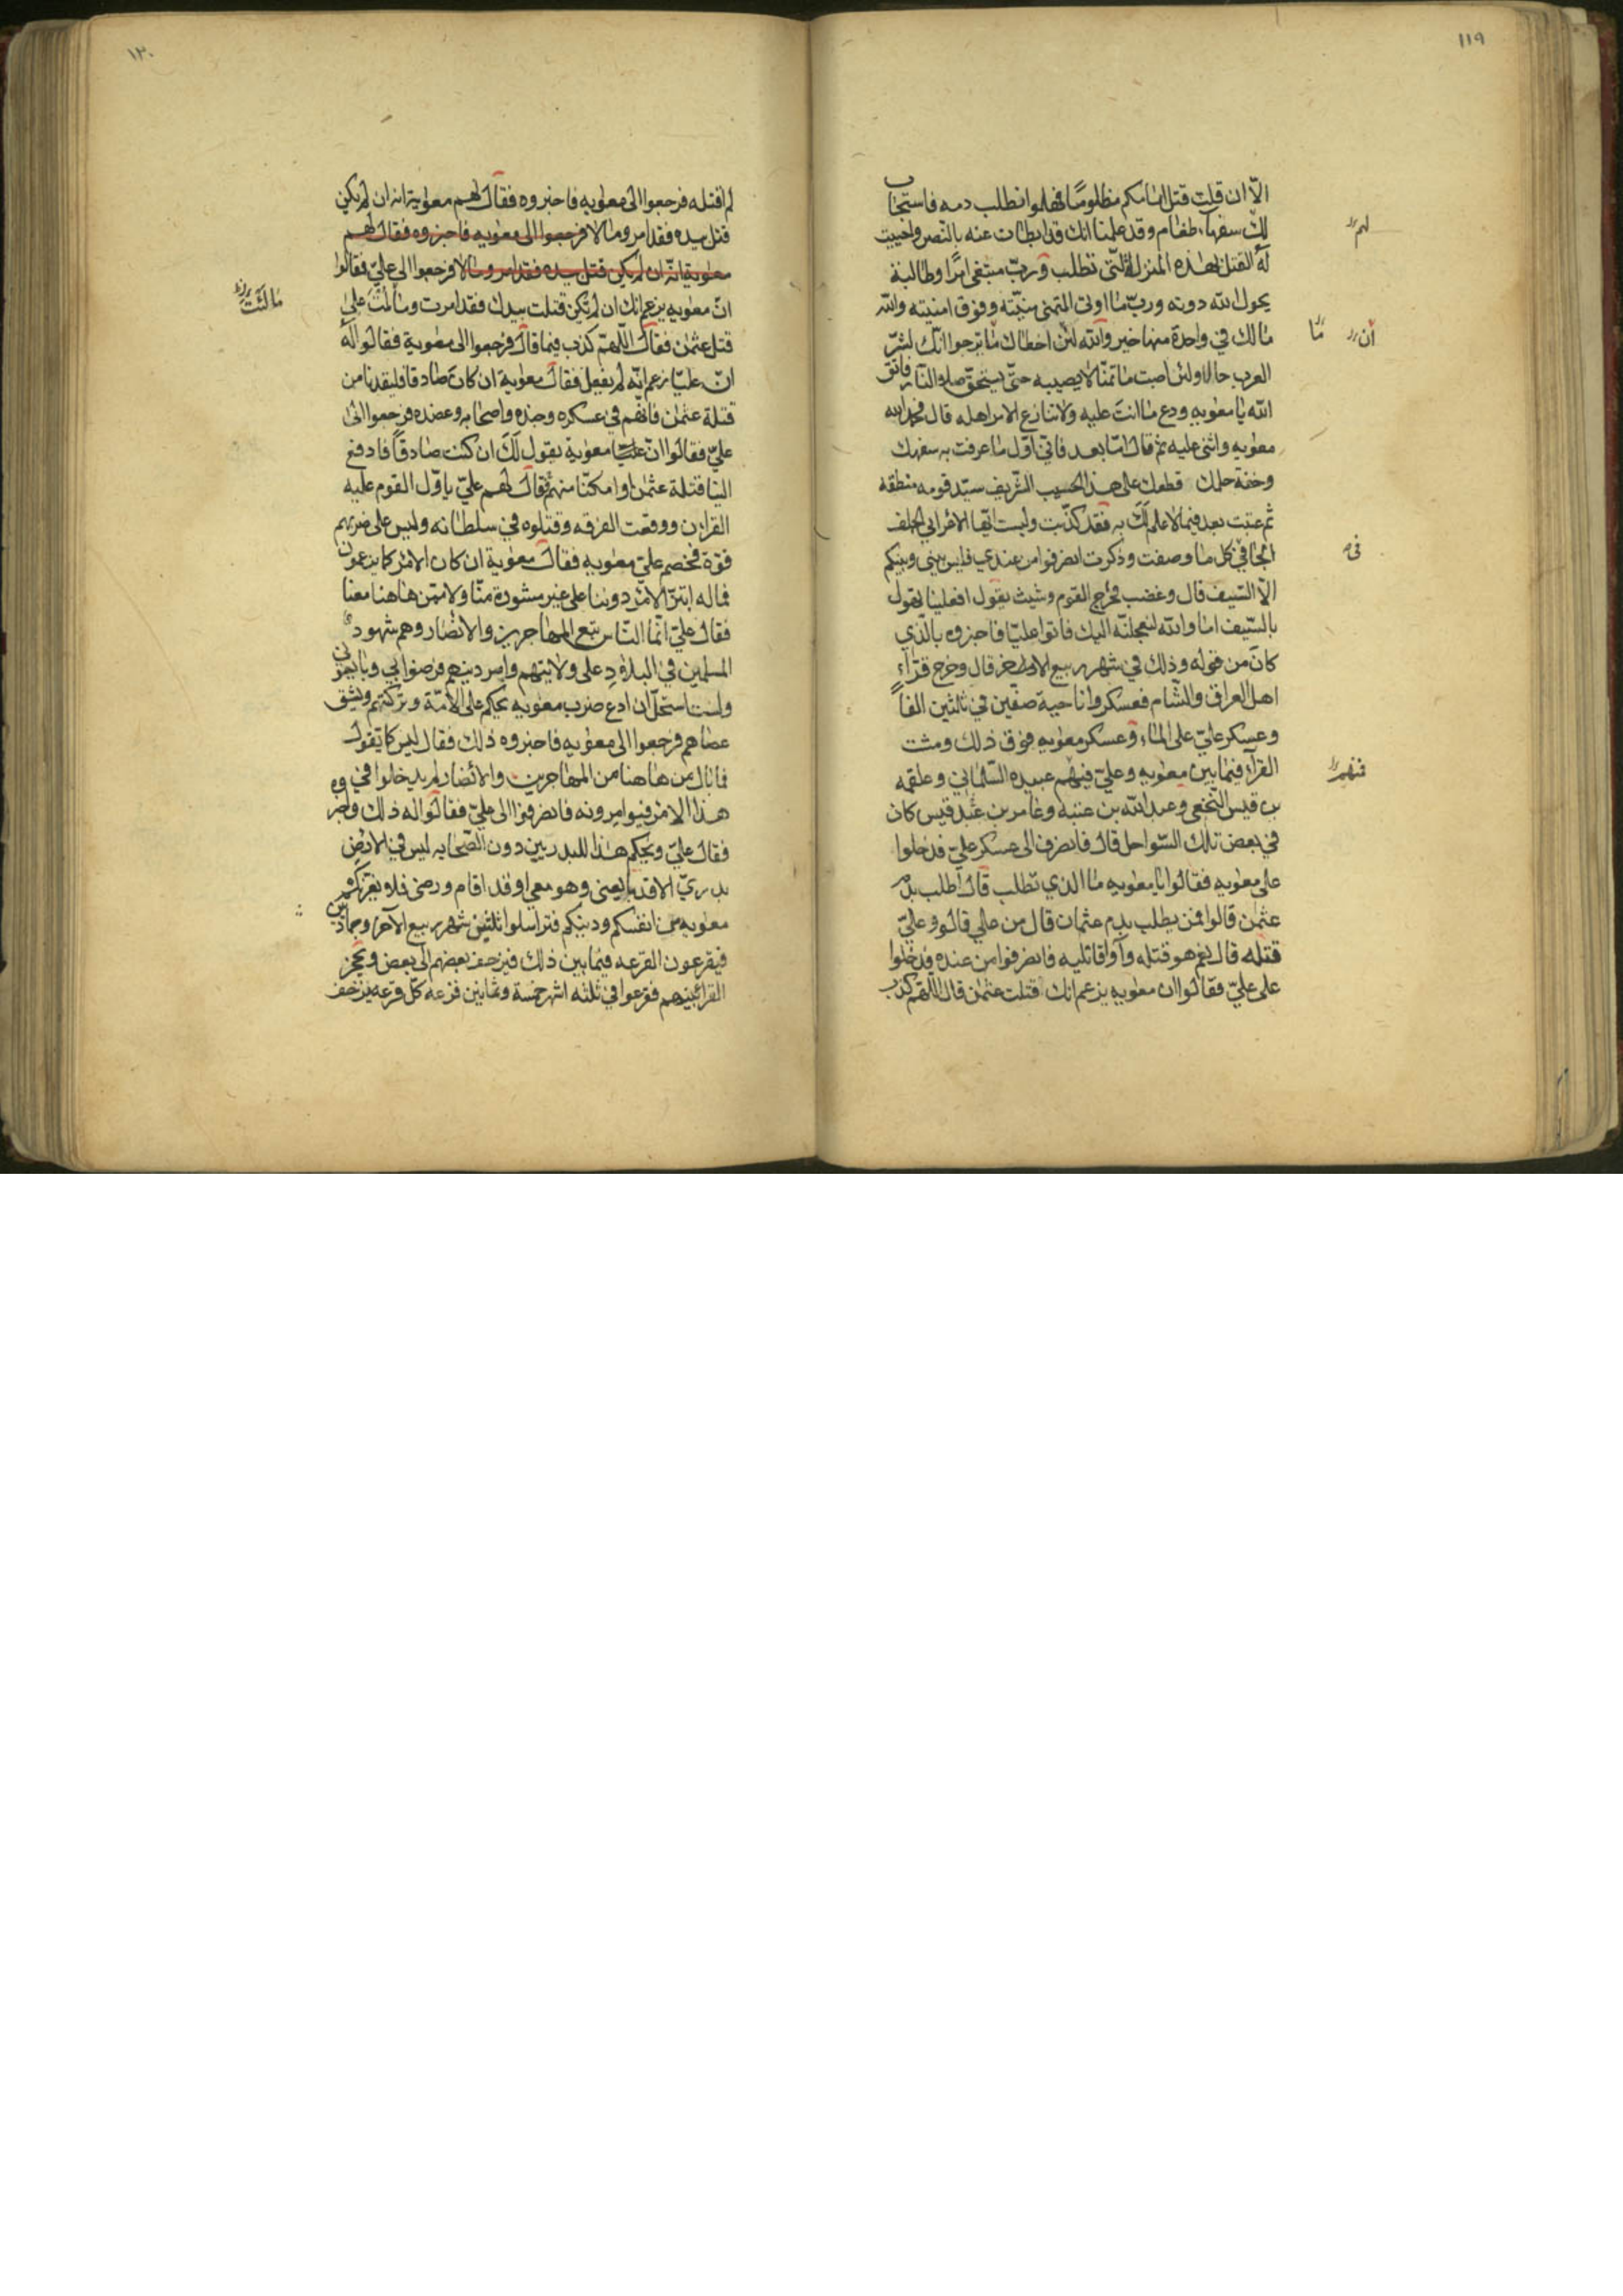 ١١٩
الّا ان قلت قتل امامكم مظلومًا فهلموا نطلب دمه فاستجاب
لك سفهاء طغام وقد علمنا انك قد ابطات عنه بالنصر واحببت
له القتل لهذه المنزلة التى تطلب وربّ مبتغى امرًا وطالبه
يحول الله دونه وربّ ما اوتى المتمنى منيّته وفوق امنيته والله
مالك في واحدة منها خير والله لئن اخطاك ما ترجوا انّك لشرّ
العرب حالا ولئن اصبت ما تمنّا لا يصيبه حتّى يستحقّ صلو النّار فاتق
الله يا معويه ودع ما انت عليه ولا تنازع الامر اهله قال فحمد الله
معويه واثنى عليه ثم قال امّا بعد فانّي اوّل ما عرفت به سفهك
وخفة حلمك قطعك على هذا الحسيب الشّريف سيّد قومه منطقه
ثم عتبت بعد فيما لا علم لك به فقد كذبت وليت ايّها الاعرابي الجلف
الجافي كل ما وصفت وذكرت انصرفوا من عندي فليس بيني وبينكم
الّا السّيف قال وغضب فخرج القوم وشبث يقول افعلينا تهول
بالسّيف اما والله لنعجلنّه اليك فاتوا عليّا فاخبروه بالّذي
كان من قوله وذلك في شهر ربيع الاخر قال وخرج قرّاء
اهل العراق والشّام فعسكروا ناحية صفّين في ثلثين الفاً
وعسكر عليّ على الماء وعسكر معويه فوق ذلك ومشت
القرّاء فيما بين معويه وعليّ فيهم عبيده السّلماني وعلقمه
بن قيس النّخعى وعبد الله بن عتبه وعامر بن عبد قيس كان
في بعض تلك السّواحل قال فانصرف الى عسكر عليّ فدخلوا
على معويه فقالوا يا معويه ما الذي تطلب قال اطلب بدم
عثمن قالوا فمن يطلب بدم عثمان قال من علي قالوا وعليّ
قتله قال نعم هو قتله وآوا قاتليه فانصرفوا من عنده فدخلوا
على عليّ فقالوا ان معويه يزعم انك قتلت عثمن قال اللهم كذب
لهم
أن ما
فى
فيهم
١٢٠
لم اقتله فرجعوا الى معويه فاخبروه فقال لهم معوية انه ان لم يكن
قتل بيده فقد امر ومالا فرجعوا الى معويه فاخبروه فقال لهم
معوية انّه ان لم يكن قتل بيده فقد امر ومالا فرجعوا الي عليّ فقالوا
انّ معويه يزعم انك ان لم تكن قتلت بيدك فقد امرت ومالئت على
قتل عثمن فقال اللّهمّ كذب فيما قال فرجعوا الى معوية فقالوا له
انّ عليّا يزعم انّه لم يفعل فقال معوية ان كان صادقا فليقدنا من
قتلة عثمن فانهم في عسكره وجنده واصحابه وعضده فرجعوا الى
عليّ فقالوا انّ معوية يقول لك ان كنت صادقاً فادفع
الينا قتلة عثمن او امكنّا منهم فقال لهم عليّ تاوّل القوم عليه
القران ووقعت الفرقه وقتلوه في سلطانه وليس على ضربهم
قوة فخصم عليّ معويه فقال معوية ان كان الامر كما يزعمون
فماله ابتزّ الامر دوننا على غير مشورة منّا ولا ممّن هاهنا معنا
فقال عليّ انّما النّاس تبع المهاجرين والانصار وهم شهود
المسلمين في البلاد على ولايتهم وامر دينهم فرضوا بي وبايعوني
ولست استحلّ ان ادع ضرب معويه يحكم على الأمّة وتركتهم ويشق
عصاهم فرجعوا الى معويه فاخبروه ذلك فقال ليس كما تقول
فما بال من هاهنا من المهاجرين والانصار لم يدخلوا في
هذا الامر فيوامرونه فانصرفوا الى عليّ فقالوا له ذلك
فقال عليّ ويحكم هذا للبدريين دون الصّحابه ليس في الارض
بدريّ الا قد بايعنى وهو معي او قد اقام ورضى فلا يغرّنكم
معويه من انفسكم ودينكم فتراسلوا ثلثين شهر ربيع الآخر وجمادين
فيقرعون القرعه فيما بين ذلك فيزحف بعضهم الى بعض وتحجز
القرا بينهم فقرعوا في ثلثه اشهر خمسة وثمانين قزعه كلّ قرعه يزحف
مالئت